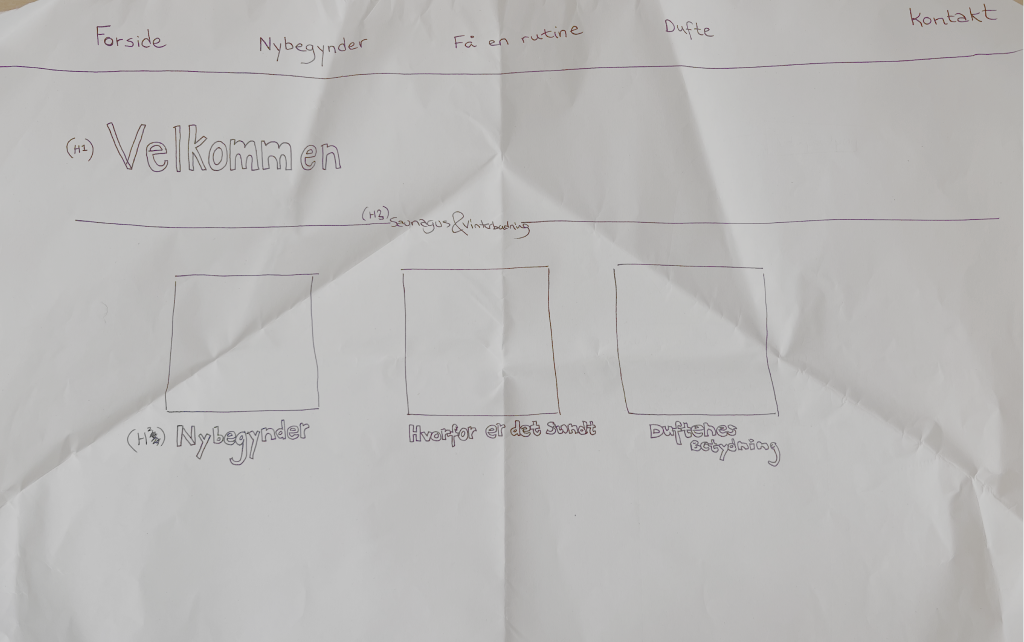 Forside Nybegynder Få en rutine Dufte Kontakt
(H1) Velkommen
(H3) Saunagus & Vinterbadning
Nybegynder
Hvorfor er det Sundt
Duftenes
Betydning